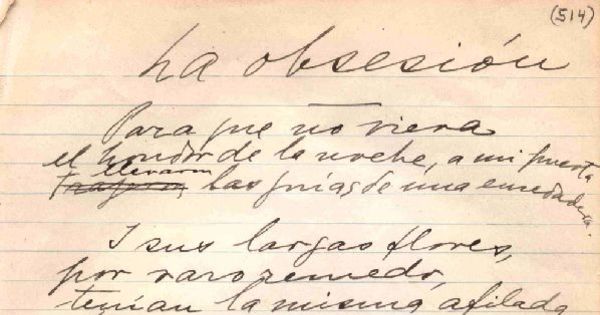 (514)
La obsesión
Para que no viera
el hondor de la noche, a mi puerta
llevaron
trajeron las guías de una enredadera.
I sus largas flores,
por raro remedo,
tenían la misma afilada